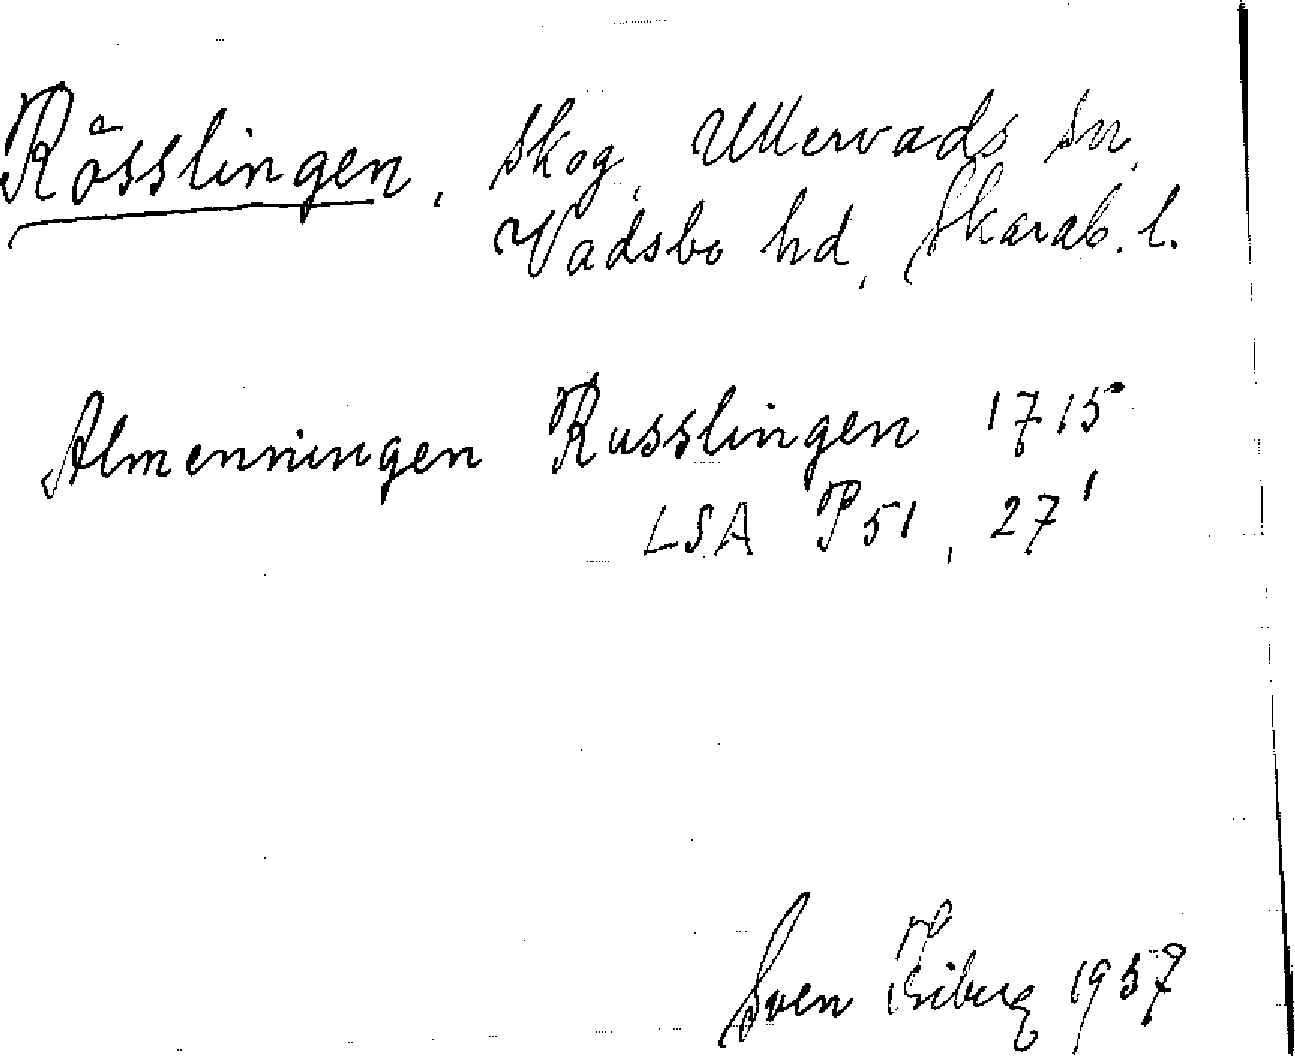 Rösslingen, Skog, Ullervads sn,
Vadsbo hd, Skarab. l.
Almenningen Russlingen 1715
LSA P51, 27'
Sven 1957